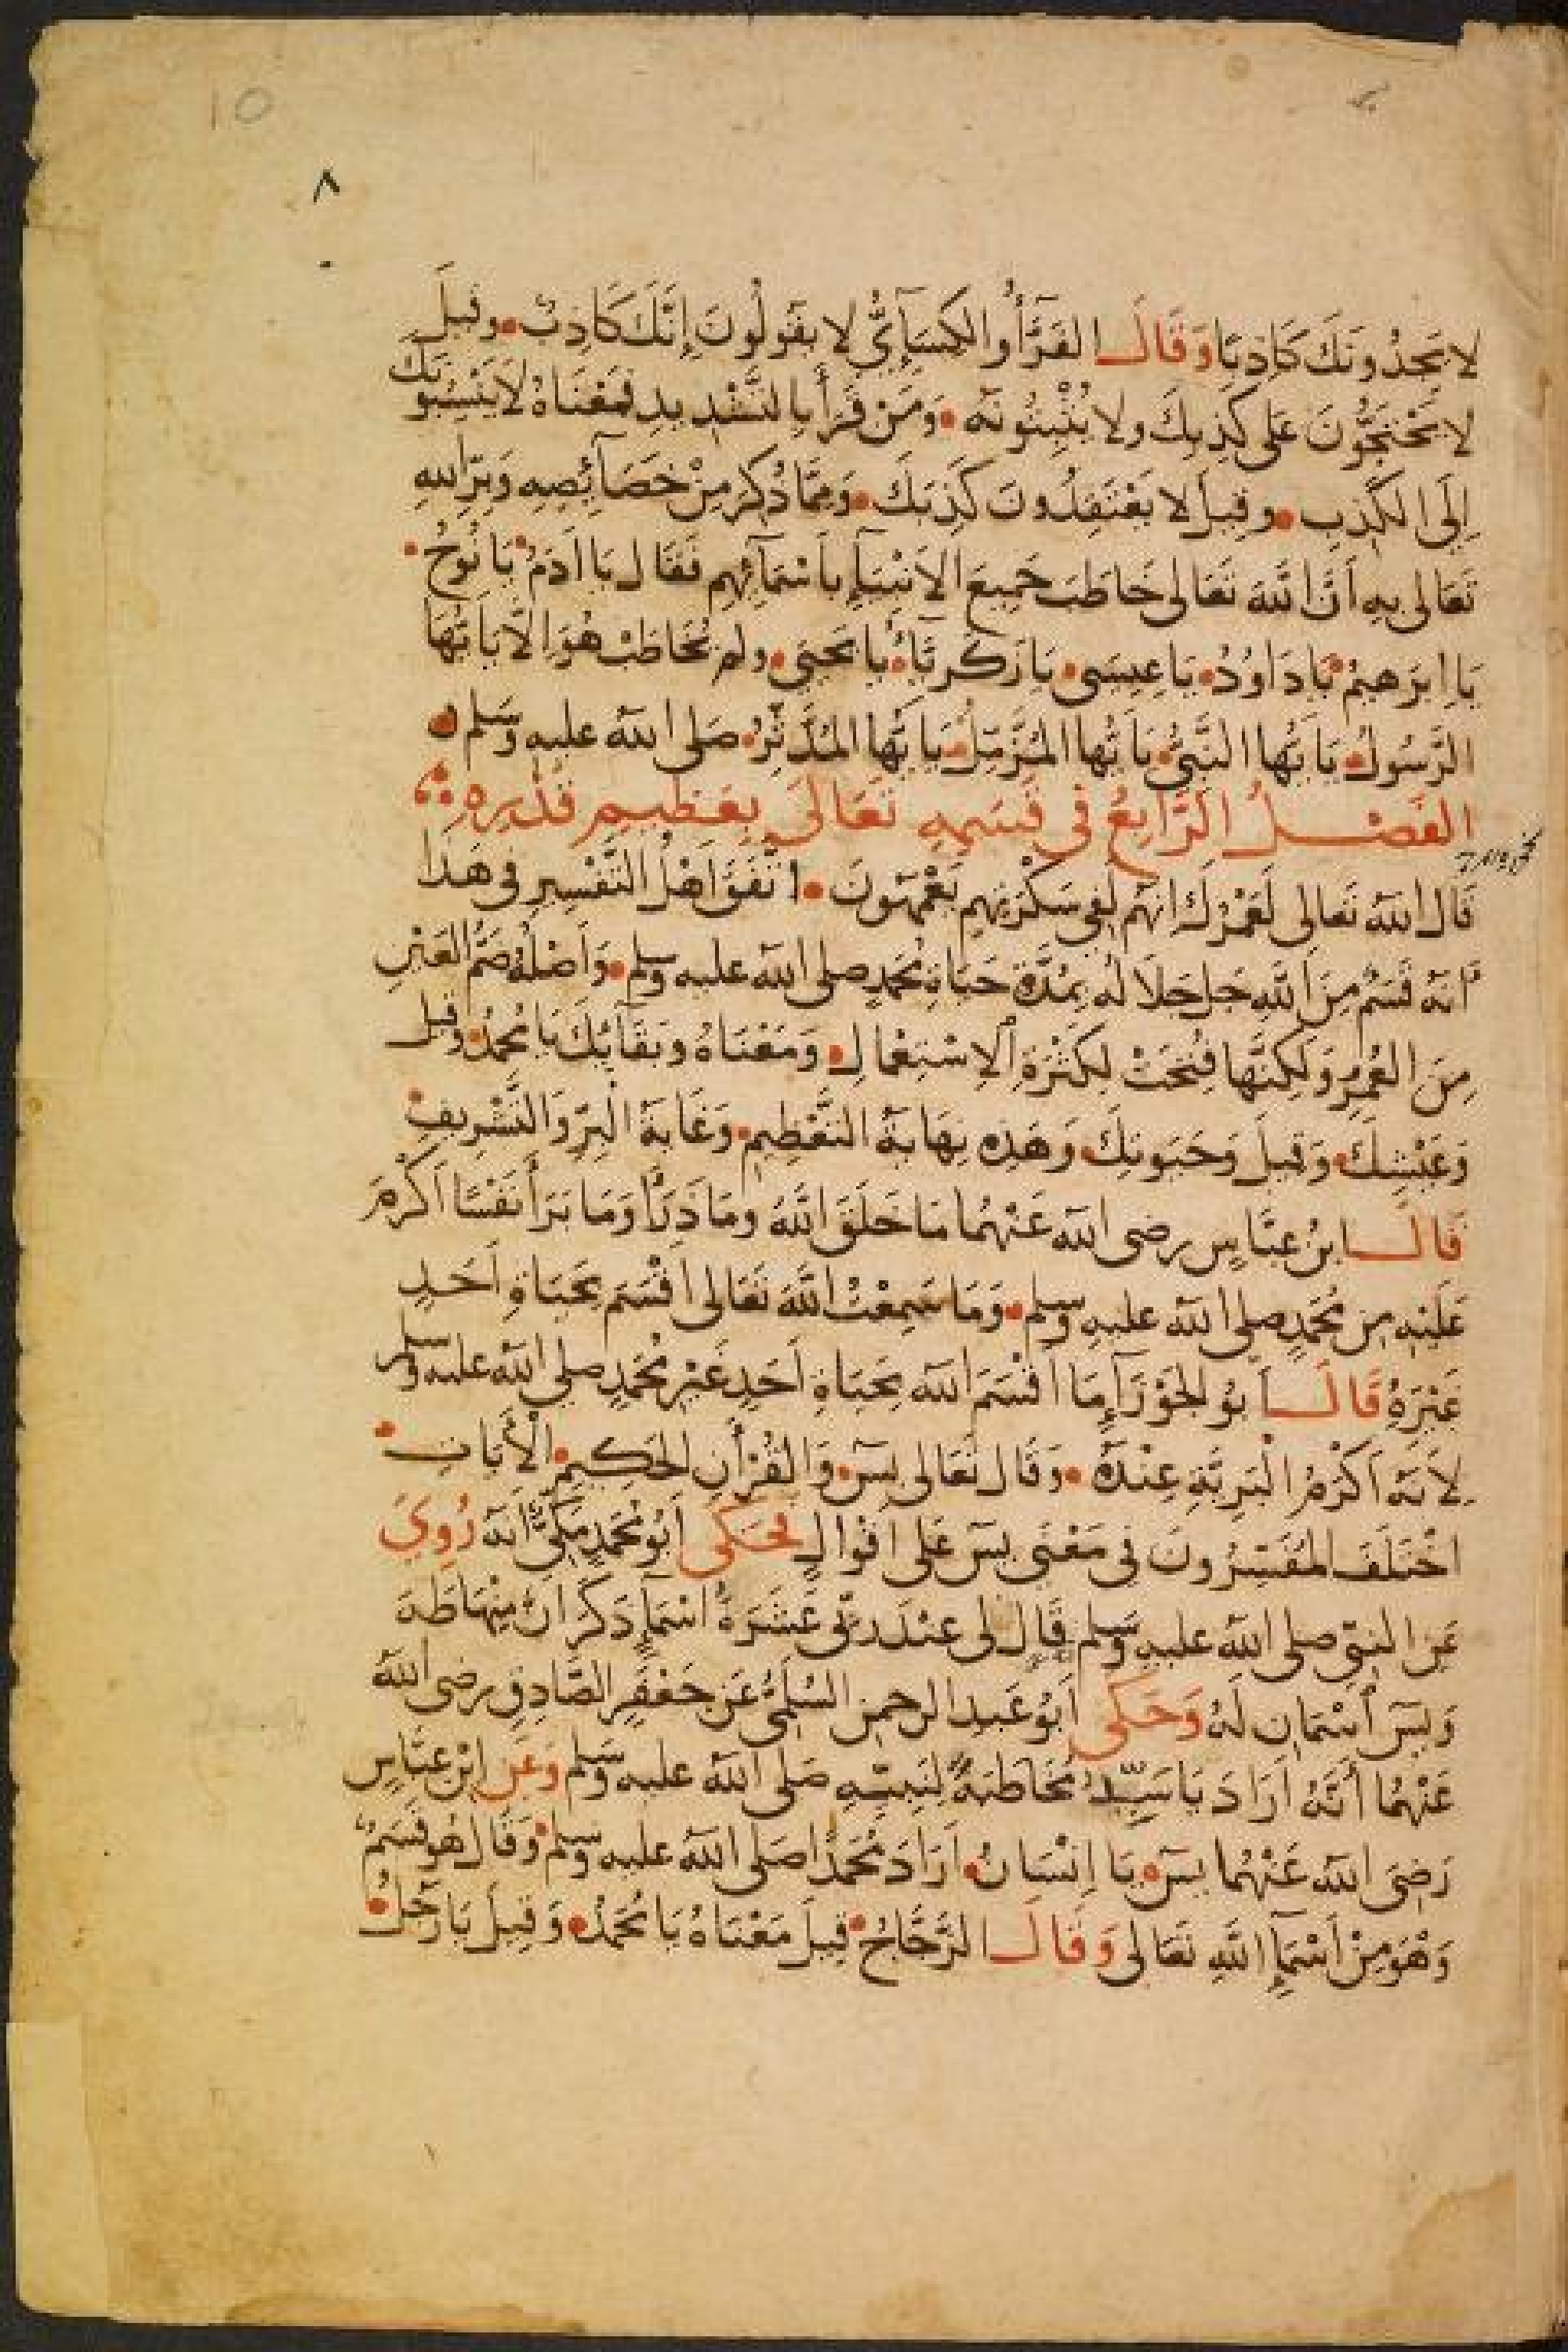 10
٨
لا يَجِدُونَكَ كَاذِبًا وَقَالَ الفَرَّاُ والكِسَآئِيُّ لا يقولُونَ إِنَّكَ كَاذِبٌ وقيلَ
لا يَحْتَجُّونَ عَلى كَذِبِكَ ولا يُثْبِتُونَه وَمَنْ قَرَأَ بالتَّشْدِيدِ فمَعْنَاهُ لَا يَنْسُبُونَكَ
إِلَى الكَذِبِ وقيلَ لا يَعْتَقِدُونَ كَذِبَكَ وَمِمَّا ذُكِرَ مِنْ خَصَآئِصِهِ وَبِرِّ اللهِ
تَعَالى بِهِ اَنَّ اللهَ تَعَالى خَاطَبَ جَمِيعَ الاَنْبِيَآءِ باَسْمَآئِهِم فَقَال يَا اَدَمُ يَا نُوحُ
يَا ابْرَهِيمُ يَا دَاوُدُ يَا عِيسَى يَا زَكَرِيَّاءُ يا يَحيَى ولم يُخَاطَبْ هُوَ الَّا يَايُّهَا
الرَّسُولُ يَايُّها النَّبِيُّ يَايُّها المُزَّمِّلُ يَايُّها المُدَّثِّرُ صَلى اللهُ عليه وَسَلم
الفَصْلُ الرَّابِعُ فى قَسَمِهِ تَعَالَى بِعَظِيمِ قَدْرِهِ
قَال اللهُ تَعالى لَعَمْرُكَ اِنهُم لَفِي سَكْرَتِهِم يَعْمَهُونَ اتَّفَقَ اهْلُ التَّفْسِيرِ فى هَذَا
اَنهُ قَسَمٌ مِنَ اللهِ جَل جَلَالُه بِمُدَّةِ حَيَاةِ مُحَمدٍ صلى اللهُ عليه وسلم وَاَصْلُهُ ضَمُّ العَيْنِ
مِنَ العُمرِ وَلكِنَّها فُتِحَتْ لِكَثْرَةِ الِاسْتِعْمَالِ وَمَعْنَاهُ وبَقَآئِكَ يَا مُحمدُ وقيل
وَعَيْشِكَ وَقيلَ وَحَيَوتِكَ وَهَذِه نِهَايَةُ التَّعْظِيمِ وَغَايَةُ الْبِرِّ وَالتَّشْرِيفِ
قَالَ ابنُ عَبَّاسٍ رضى اللهُ عَنْهُمَا مَا خَلَقَ اللهُ ومَا ذَرَأَ وَمَا بَرَأَ نَفْسًا اَكْرَمَ
عَلَيْهِ مِن مُحَمدٍ صلى اللهُ عليهِ وسلم وَمَا سَمِعْتُ اللهَ تَعَالى اَقْسَمَ بحَيَاةِ اَحَدٍ
غَيْرَهِ قَالَ اَبُو الجَوْزَآءِ مَا اَقْسَمَ اللهُ بحَيَاةِ اَحَدٍ غَيْرَ مُحَمدٍ صلى اللهُ عليه وسلم
لِاَنهُ اَكْرَمُ الْبَرِيَّةِ عِنْدَهُ وَقَال تَعَالى يسٓ وَالقُرْأَنِ الحَكِيمِ الْأَيَاتِ
اخْتَلَفَ المُفَسِّرُونَ فى مَعْنَى يسٓ عَلى اَقْوَالٍ فحَكَى اَبُو مُحَمدٍ مَكِّيٌّ اَنهُ رُوِيَ
عَنِ النبيّ صلى اللهُ عليه وَسَلم قَال لى عِنْدَ رَبّى عَشَرَةُ اسْمَآءٍ ذَكَرَ اَنَّ مِنْهَا طَهَ
وَيسٓ اسْمَان لَهُ وَحَكَى اَبُو عَبدِ الرحمنِ السُلَمِىُّ عَن جَعْفَرٍ الصَّادِقِ رضى اللهُ
عَنْهُما أَنَّهُ اَرَادَ يَا سَيِّدُ مُخَاطَبَةً لِنَبِيِّهِ صَلى اللهُ عليه وسلم وَعَنِ ابْنِ عَبَّاسٍ
رَضىَ اللهُ عَنْهُما يسٓ يَا اِنْسَانُ اَرَادَ مُحَمَّدًا صَلى اللهُ عليه وسلم وَقَال هُو قَسَمٌ
وَهْوَ مِنْ اَسْمَآءِ اللهِ تَعَالى وَقَالَ الزَّجَّاجُ قيلَ مَعْنَاهُ يَا مُحَمدُ وَقِيلَ يَا رَجُلُ